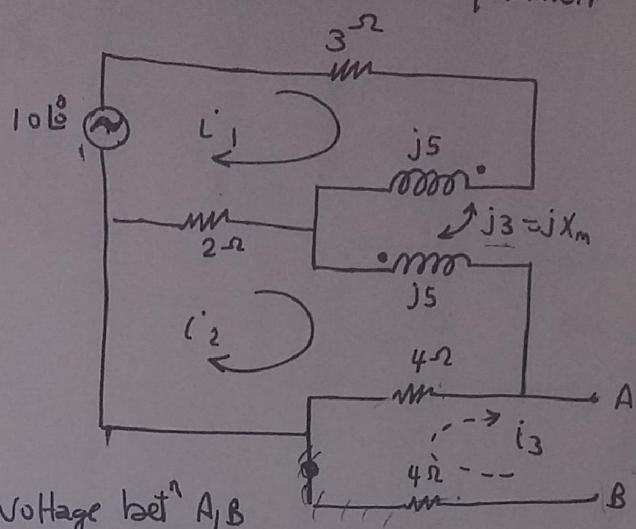 3Ω
10∠0°
i1
j5
j3 = jXm
2Ω
j5
i2
4Ω
A
i3
4Ω
B
Voltage betⁿ A,B